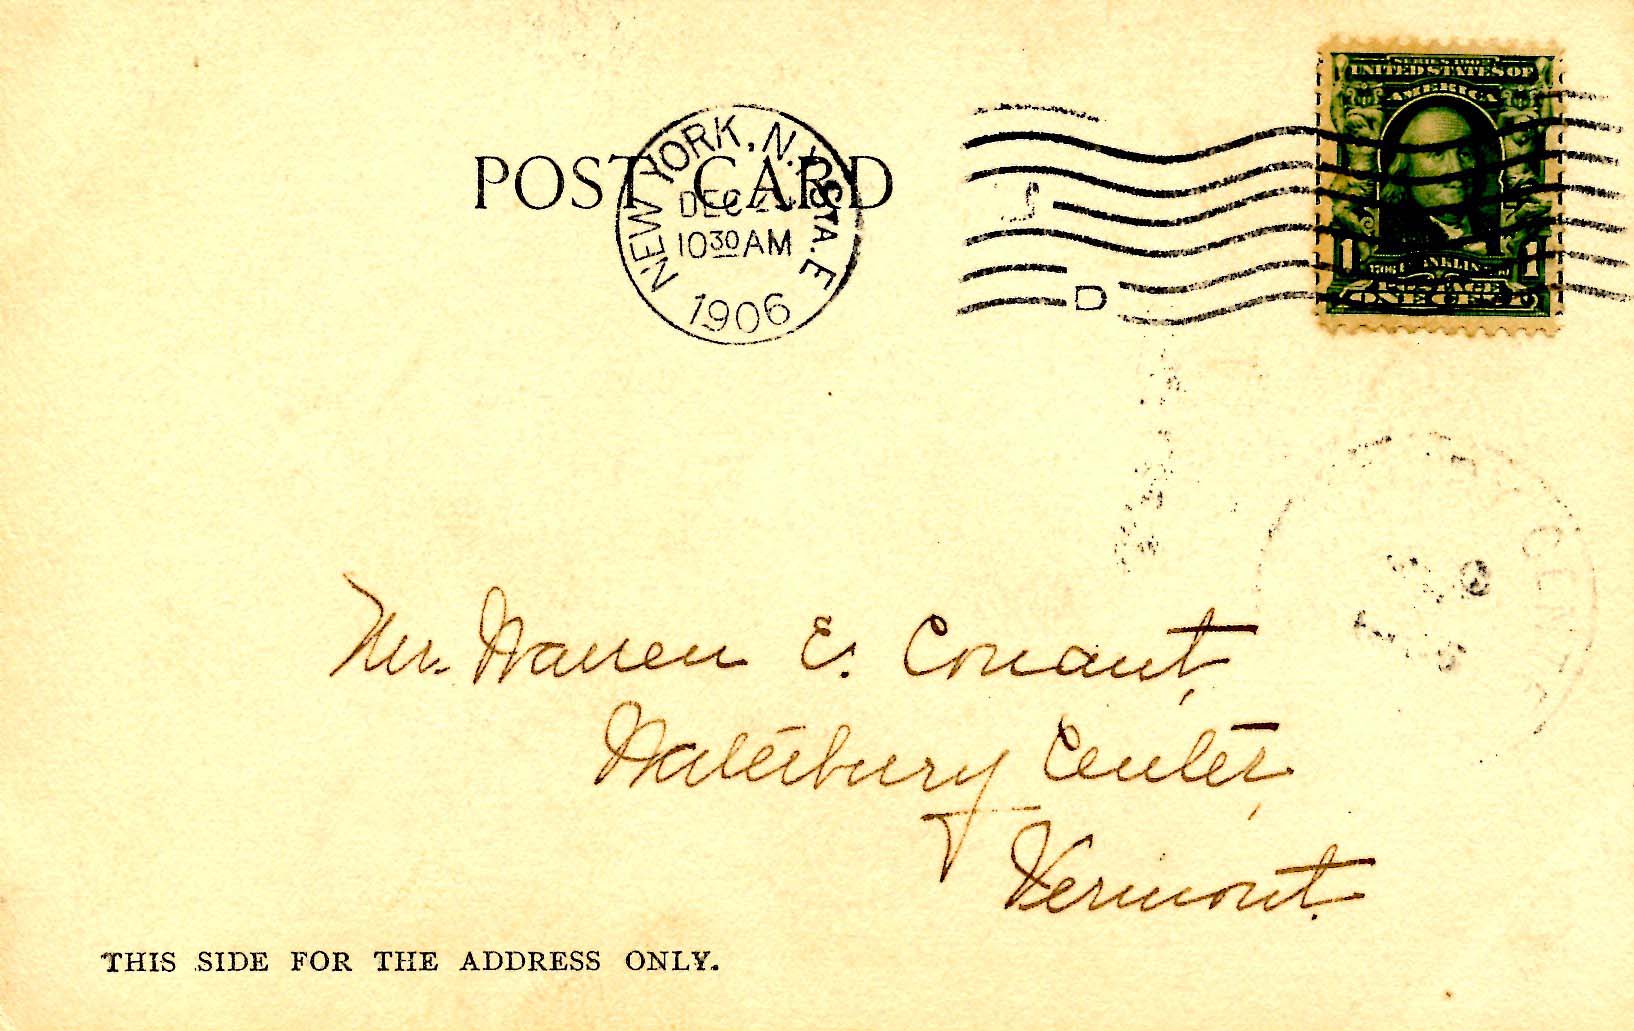 POST CARD
NEW YORK, N.Y. STA. E
DEC
10 30 AM
1906
D
SERIES 1902
UNITED STATES OF
AMERICA
FRANKLIN
POSTAGE
ONE CENT
Mr. Warren E. Conant,
Waterbury Center,
Vermont.
THIS SIDE FOR THE ADDRESS ONLY.